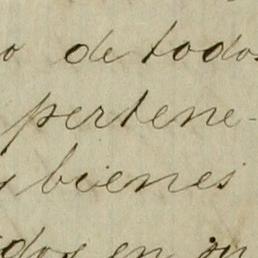 de todos
pertene-
bienes
en su